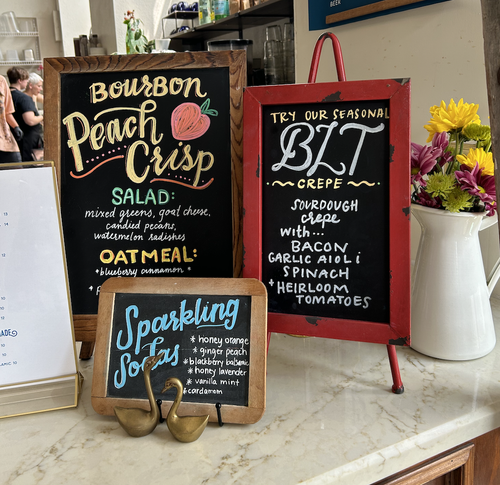 BEER
BOURBON
Peach
Crisp
SALAD:
mixed greens, goat cheese,
candied pecans,
watermelon radishes
OATMEAL:
*blueberry cinnamon *
TRY OUR SEASONAL
BLT
~CREPE~
SOURDOUGH
crepe
with...
BACON
GARLIC AIOLI
SPINACH
+HEIRLOOM
TOMATOES
Sparkling
Sodas
* honey orange
* ginger peach
*blackberry balsamic
* honey lavender
* vanilla mint
&cardamom